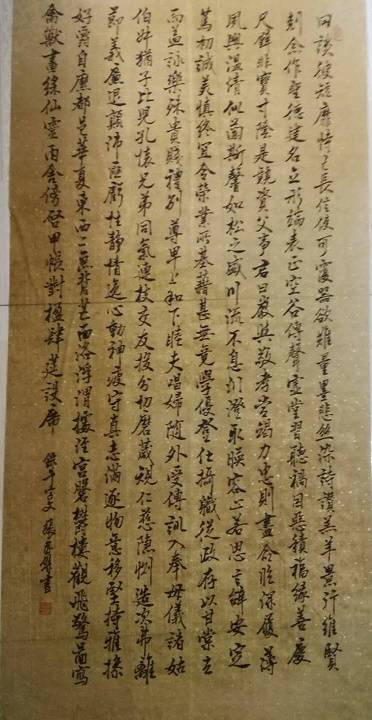 罔談彼短靡恃己長信使可覆器欲難量墨悲絲染詩讚羔羊景行維賢
剋念作聖德建名立形端表正空谷傳聲虛堂習聽禍因惡積福緣善慶
尺璧非寶寸陰是競資父事君曰嚴與敬孝當竭力忠則盡命臨深履薄
夙興溫清似蘭斯馨如松之盛川流不息淵澄取映容止若思言辭安定
篤初誠美慎終宜令榮業所基藉甚無竟學優登仕攝職從政存以甘棠去
而益詠樂殊貴賤禮別尊卑上和下睦夫唱婦隨外受傅訓入奉母儀諸姑
伯叔猶子比兒孔懷兄弟同氣連枝交友投分切磨箴規仁慈隱惻造次弗離
節義廉退顛沛匪虧性靜情逸心動神疲守真志滿逐物意移堅持雅操
好爵自縻都邑華夏東西二京背芒面洛浮渭據涇宮盤鬱樓觀飛驚圖寫
禽獸畫綵仙靈丙舍傍啓甲帳對楹肆筵設席
錄千字文 張書